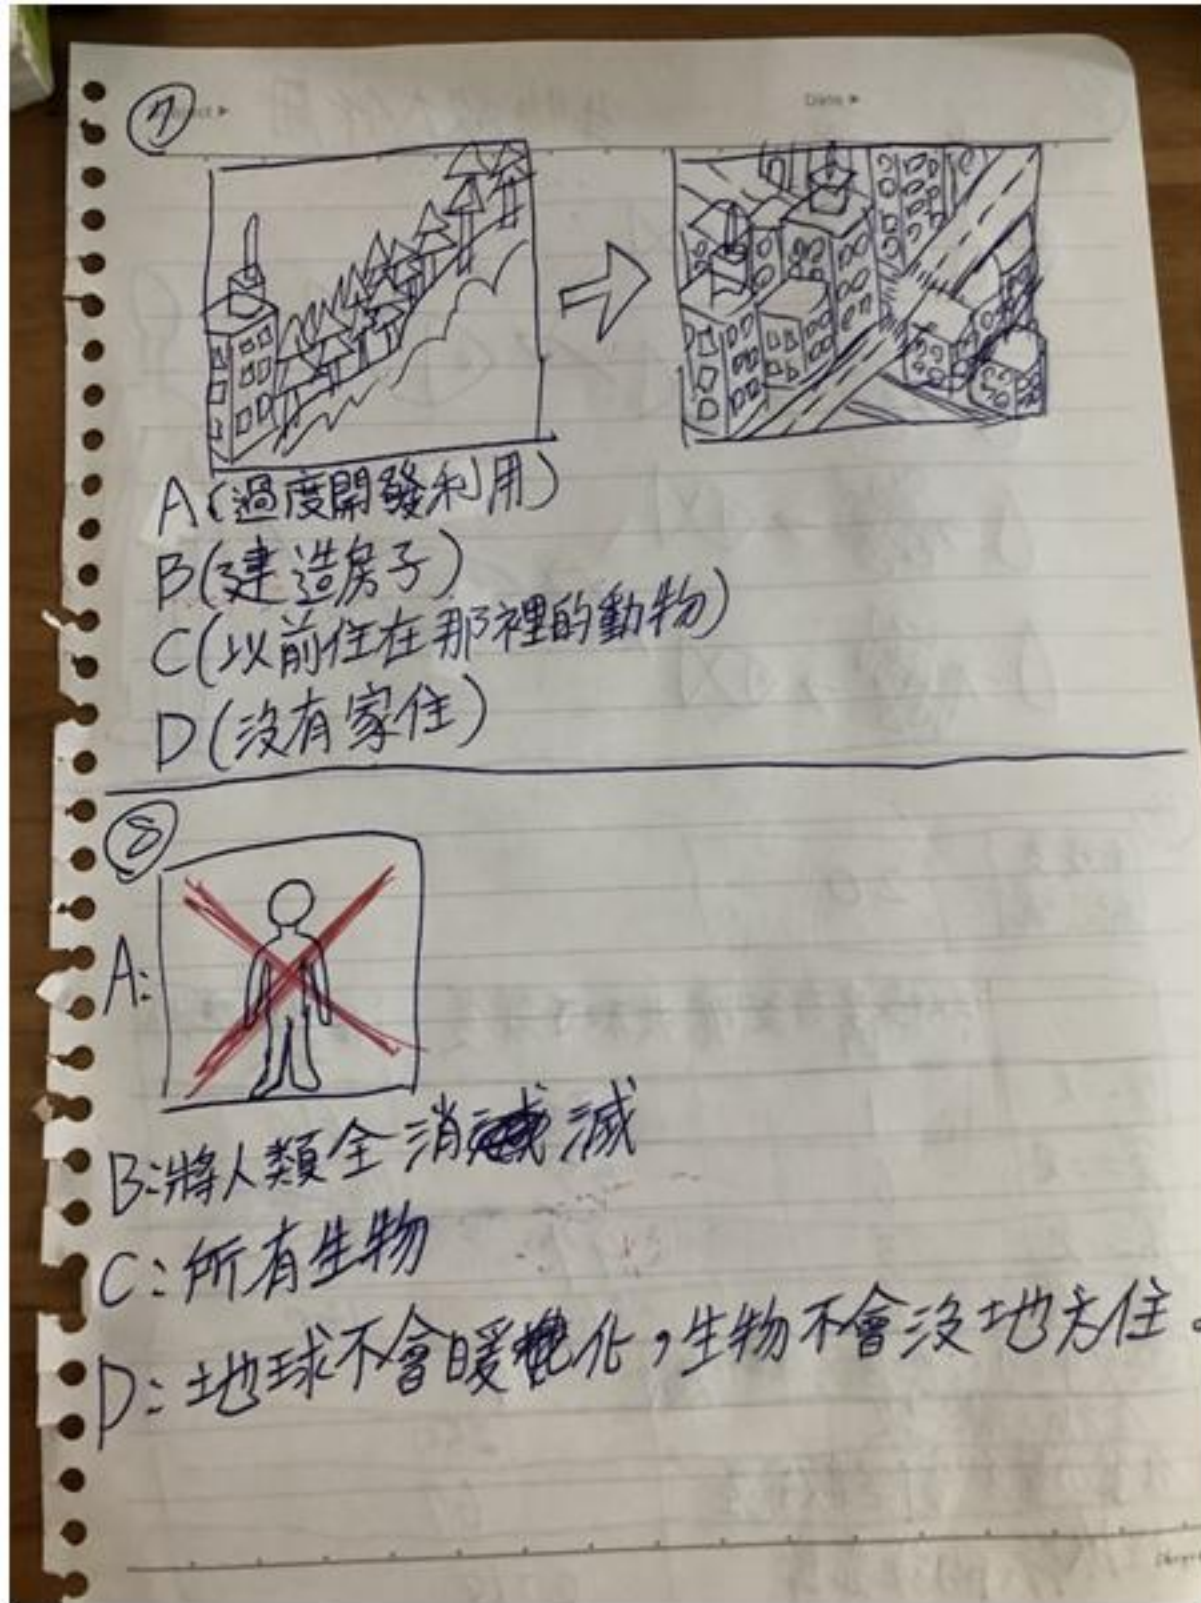 ⑦
Date ▶
A(過度開發利用)
B(建造房子)
C(以前住在那裡的動物)
D(沒有家住)
⑧
A:
B:將人類全消滅
C:所有生物
D:地球不會暖化,生物不會沒地方住。